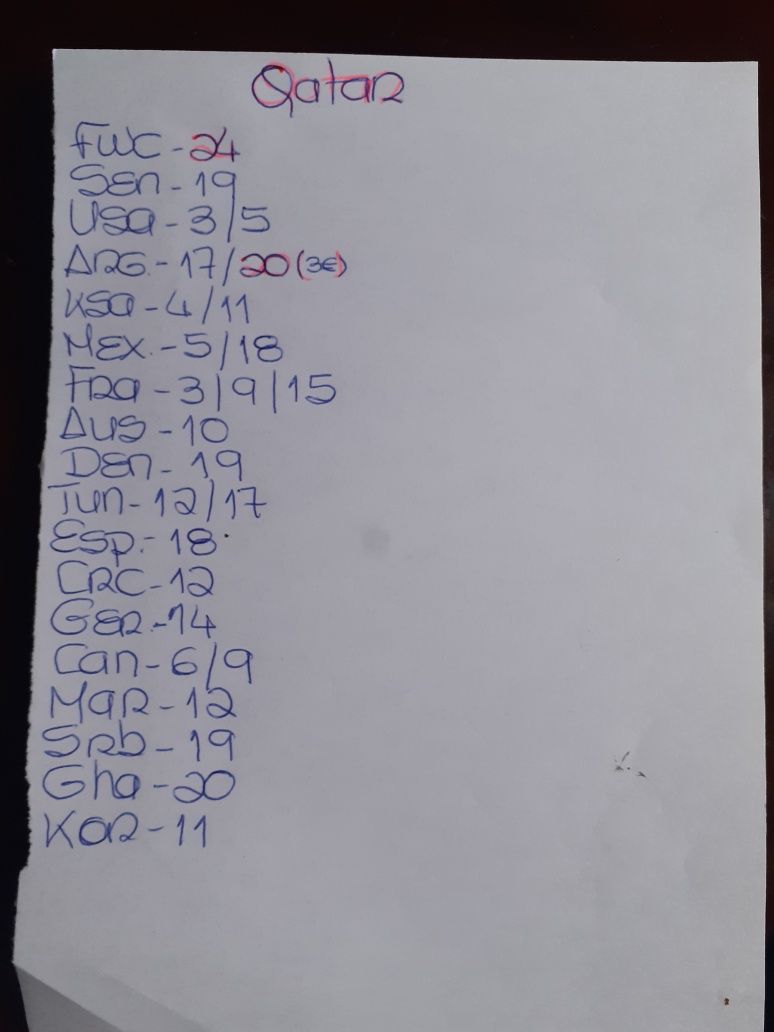 Qatar
FWC - 24
Sen - 19
USa - 3/5
ARG. - 17/20 (3€)
KSa - 4/11
Mex. - 5/18
FRa - 3/9/15
AUS - 10
Den - 19
Tun - 12/17
Esp. - 18
CRC - 12
GeR. - 14
Can - 6/9
MaR - 12
SRb - 19
Gha - 20
KOR - 11